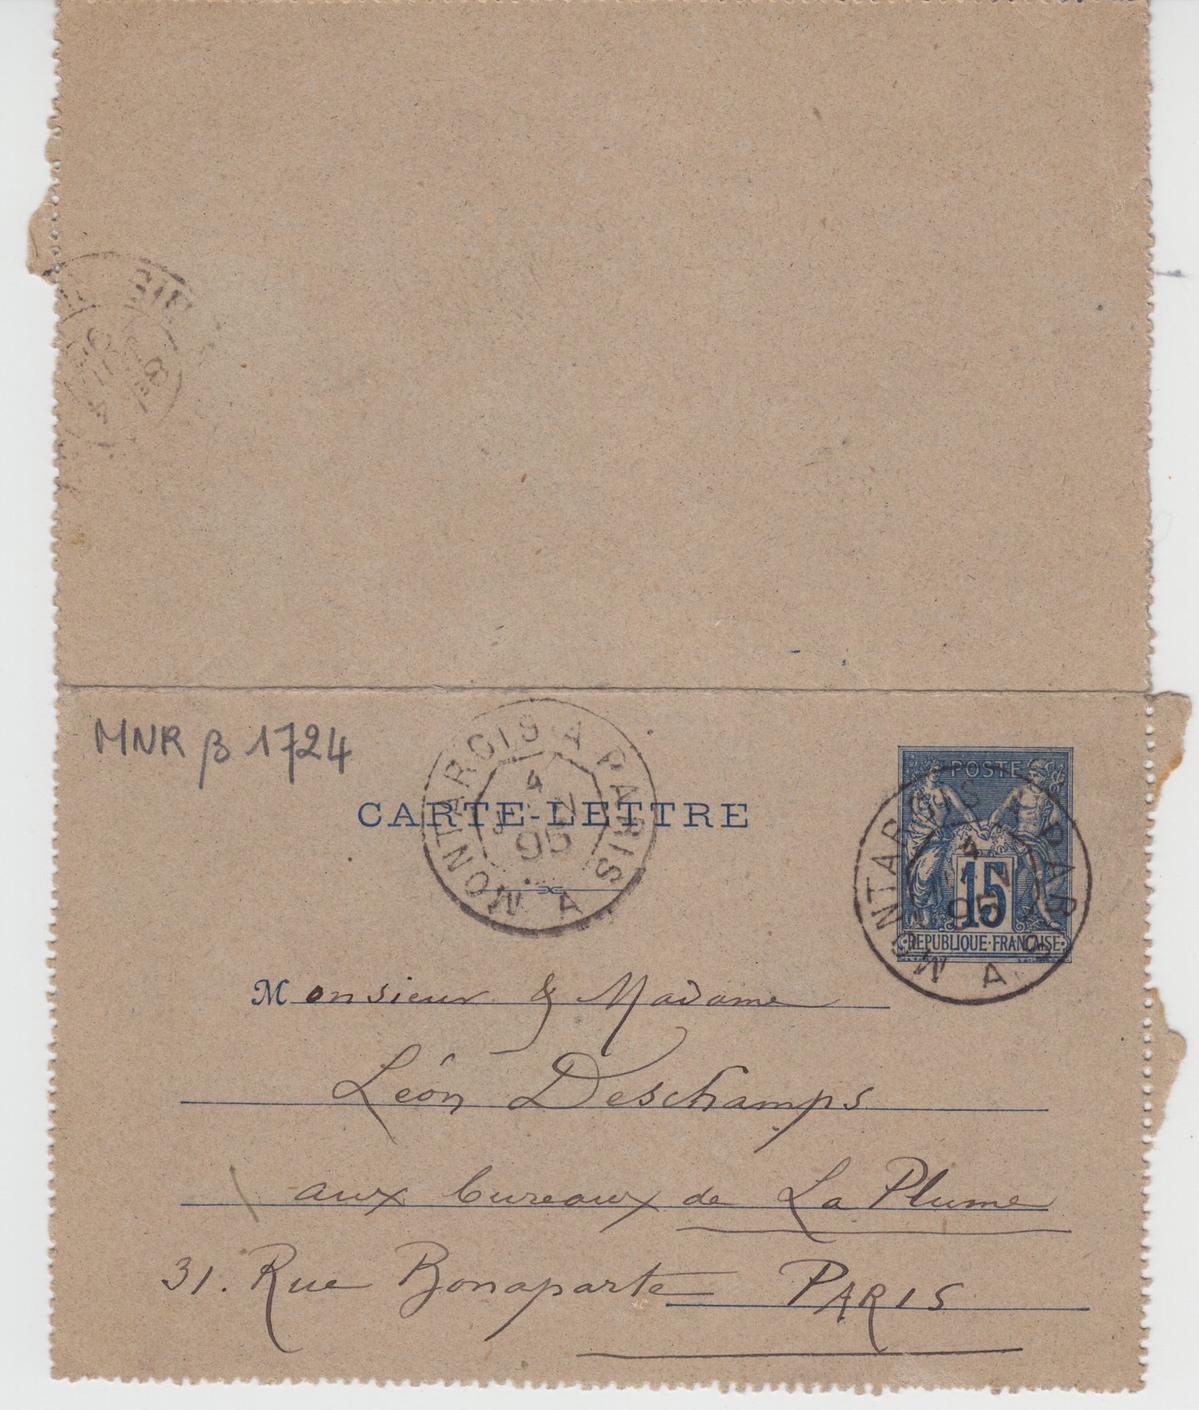 MNR β 1724
MONTARGIS A PARIS
4
95
A
CARTE-LETTRE
POSTE
15
REPUBLIQUE FRANÇAISE
MONTARGIS A PARIS
4
95
A
Monsieur & Madame
Léon Deschamps
aux bureaux de La Plume
31. Rue Bonaparte PARIS